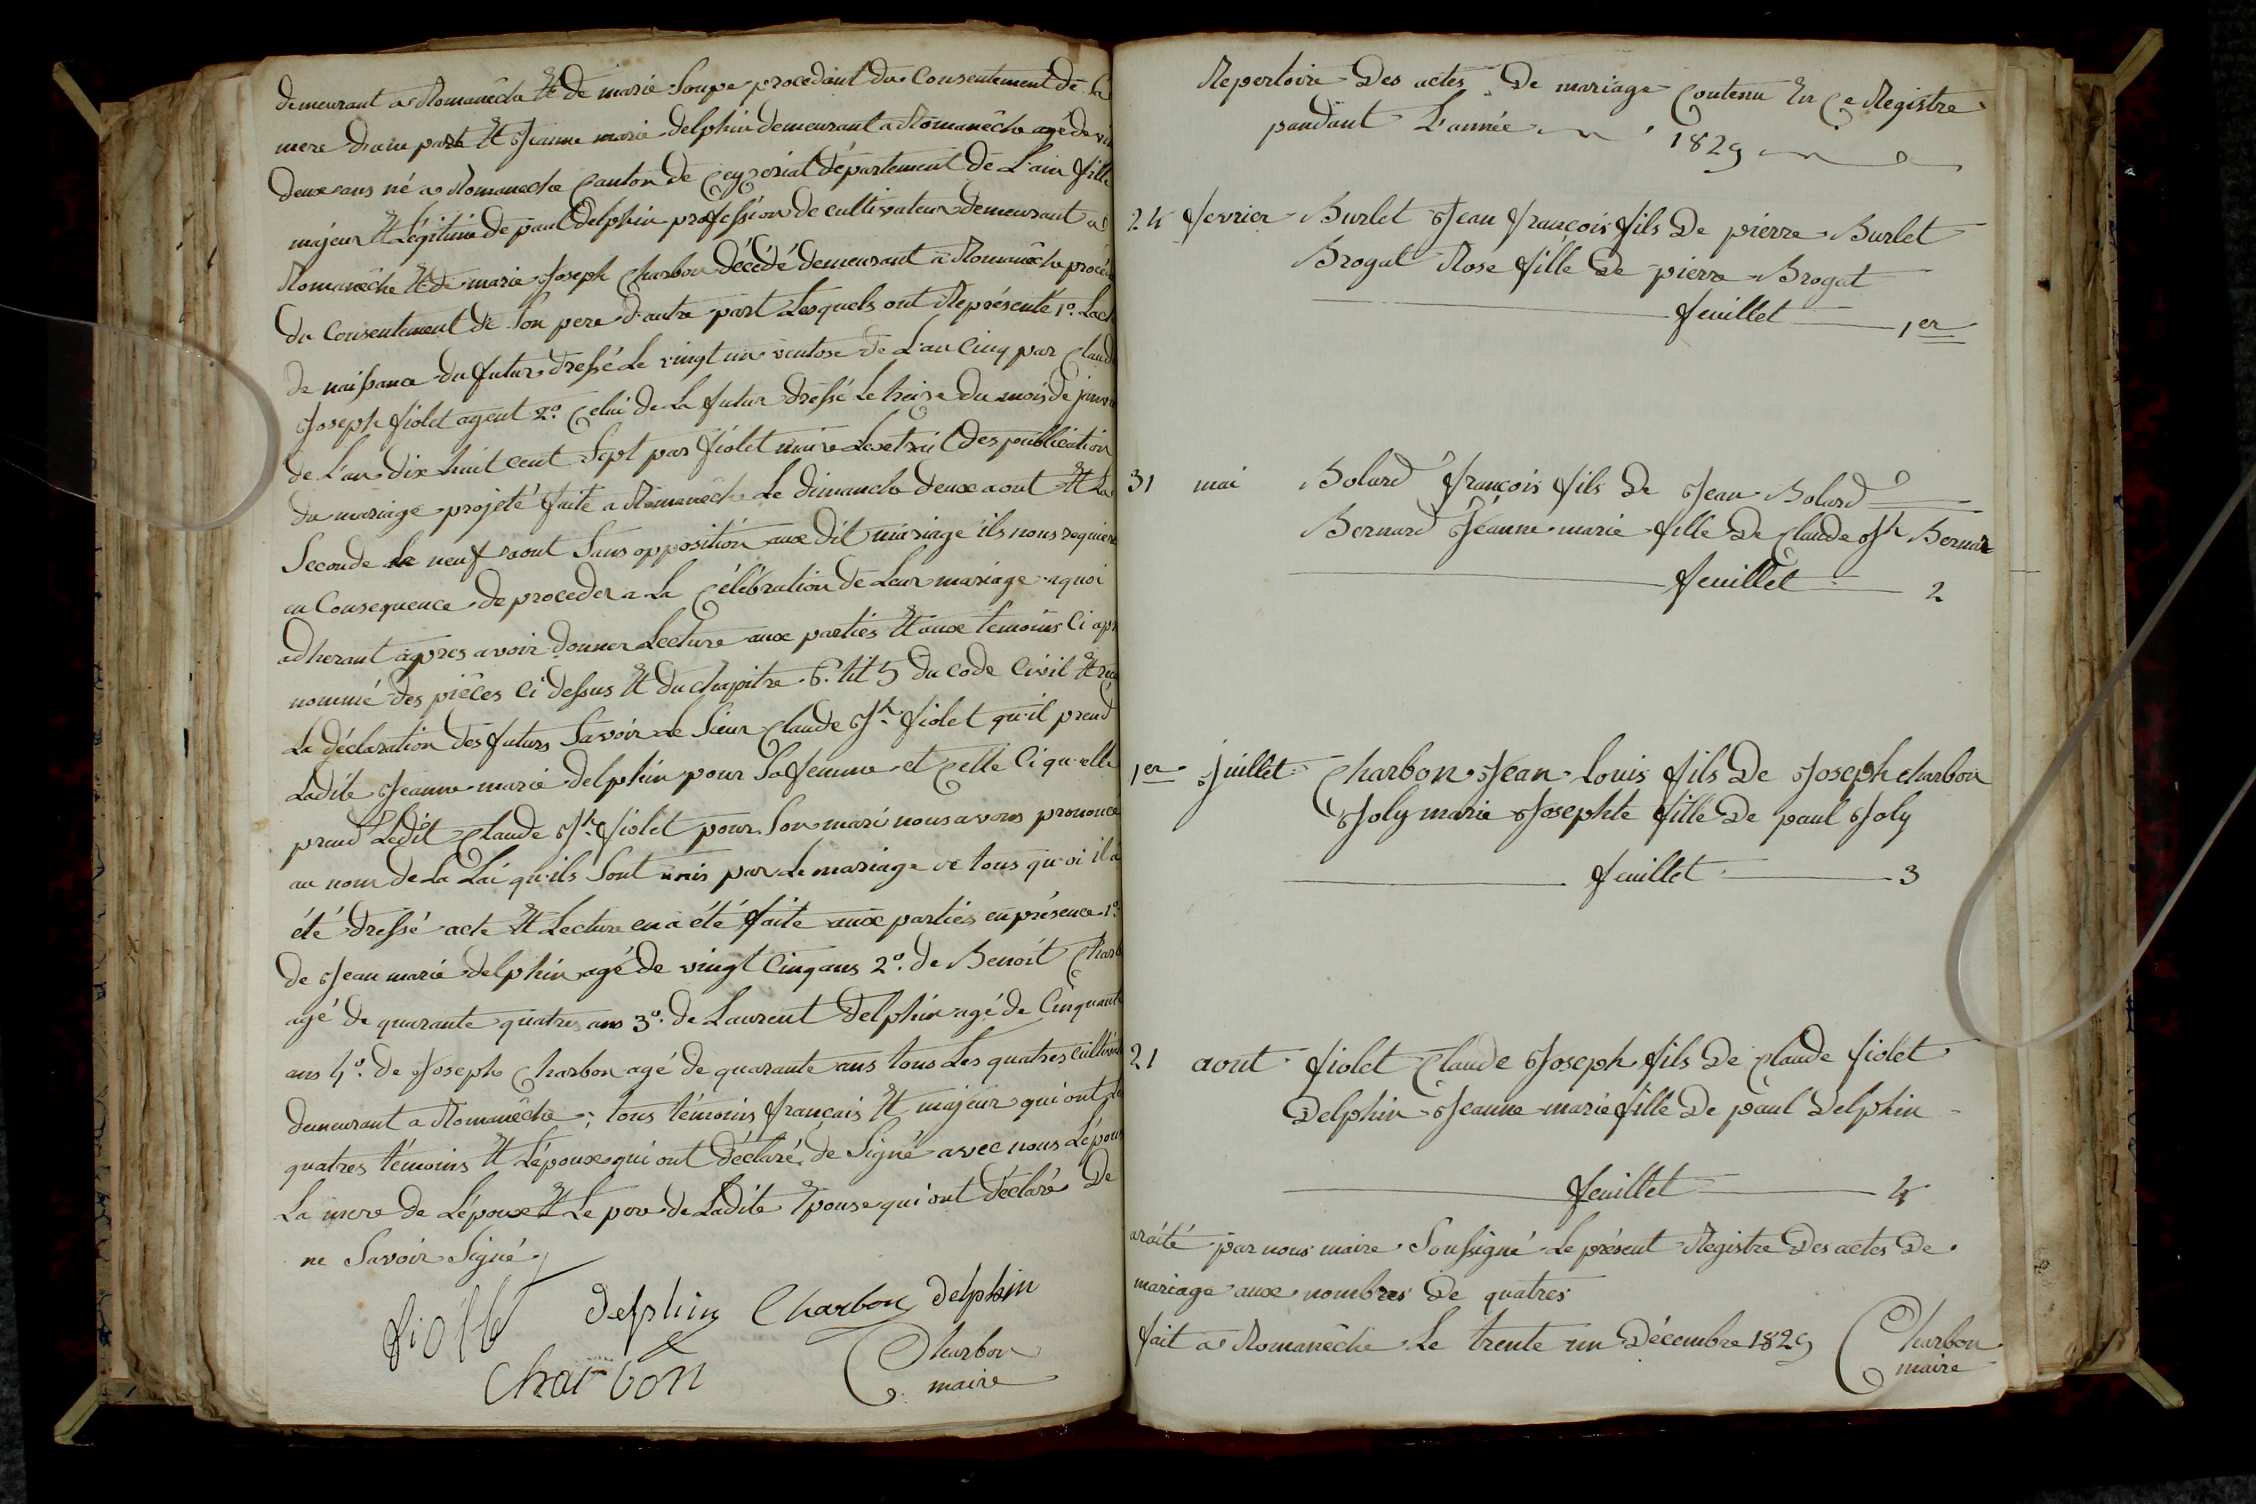 demeurant a Romanêche Et de marie Soupe procedant du Consentement de Sa
mere d'une part Et Jeanne marie delphin demeurant a Romanêche agé de
deux ans né a Romaneche Canton de Ceyzeriat département de L'ain fille
majeur Et Légitime de paul Delphin profession de cultivateur demeurant a
Romanêche Et de marie Joseph Charbon décédé demeurant a Romanêche
du Consentement de Son pere d'autre part Lesquels ont Représenté 1°.
de naissance du futur dressé Le vingt un ventose de L'an Cinq par
Joseph fiolet agent 2°. Celui de La futur dressé Le treize du mois de
de L'an dix huit cent Sept par fiolet maire Lextrait des publication
du mariage projeté faite a Romanêche Le dimanche deux aout Et La
Seconde Le neuf aout Sans opposition aux dit mariage ils nous
en Consequence de proceder a La Célébration de Leur mariage aquoi
adherant apres avoir donner Lecture aux parties Et aux temoins Ci
nommé des pièces Ci dessus Et du chapitre 6. tit 5 du code Civil Et
La déclaration des futurs Savoir Le Sieur Claude Jh. fiolet qu'il prend
Ladite Jeanne marie delphin pour Sa femme et Celle Ci qu'elle
prend Ledit Claude Jh. fiolet pour Son mari nous avons prononcé
au nom de La Lai qu'ils Sont unis par Le mariage de tous quoi il a
été dressé acte Et Lecture en a été faite aux parties en présence 1°.
de Jean marie delphin agé de vingt Cinq ans 2°. de Benoit
agé de quarante quatre ans 3°. de Laurent Delphin agé de Cinquante
ans 4°. de Joseph Charbon agé de quarante ans tous Les quatres
demeurant a Romanêche ; tous témoins français Et majeur qui ont
quatres témoins Et L'époux qui ont déclaré de Signé avec nous
La mere de L'époux Et Le pere de Ladite Epouse qui ont déclaré De
ne Savoir Signé
delphin Charbon delphin
Charbon
Charbon
maire
Repertoire Des actes De mariage Contenu En Ce Registre
pandant L'année 1829
24 fevrier Burlet Jean françois fils De pierre Burlet
Brogat Rose fille De pierre Brogat
feuillet 1er
31 mai Bolard françois fils De Jean Bolard
Bernard Jéanne marie fille De Claude Jh Bernar
feuillet 2
1er Juillet Charbon Jean Louis fils De Joseph charbon
Joly marie Josephte fille De paul Joly
feuillet 3
21 aout fiolet Claude Joseph fils De Claude fiolet
Delphin Jeanne marie fille De paul Delphin
feuillet 4
par nous maire Soussigné Le présent Registre Des actes De
mariage aux nombres De quatres
fait a Romanêche Le trente un Décembre 1829 Charbon
maire